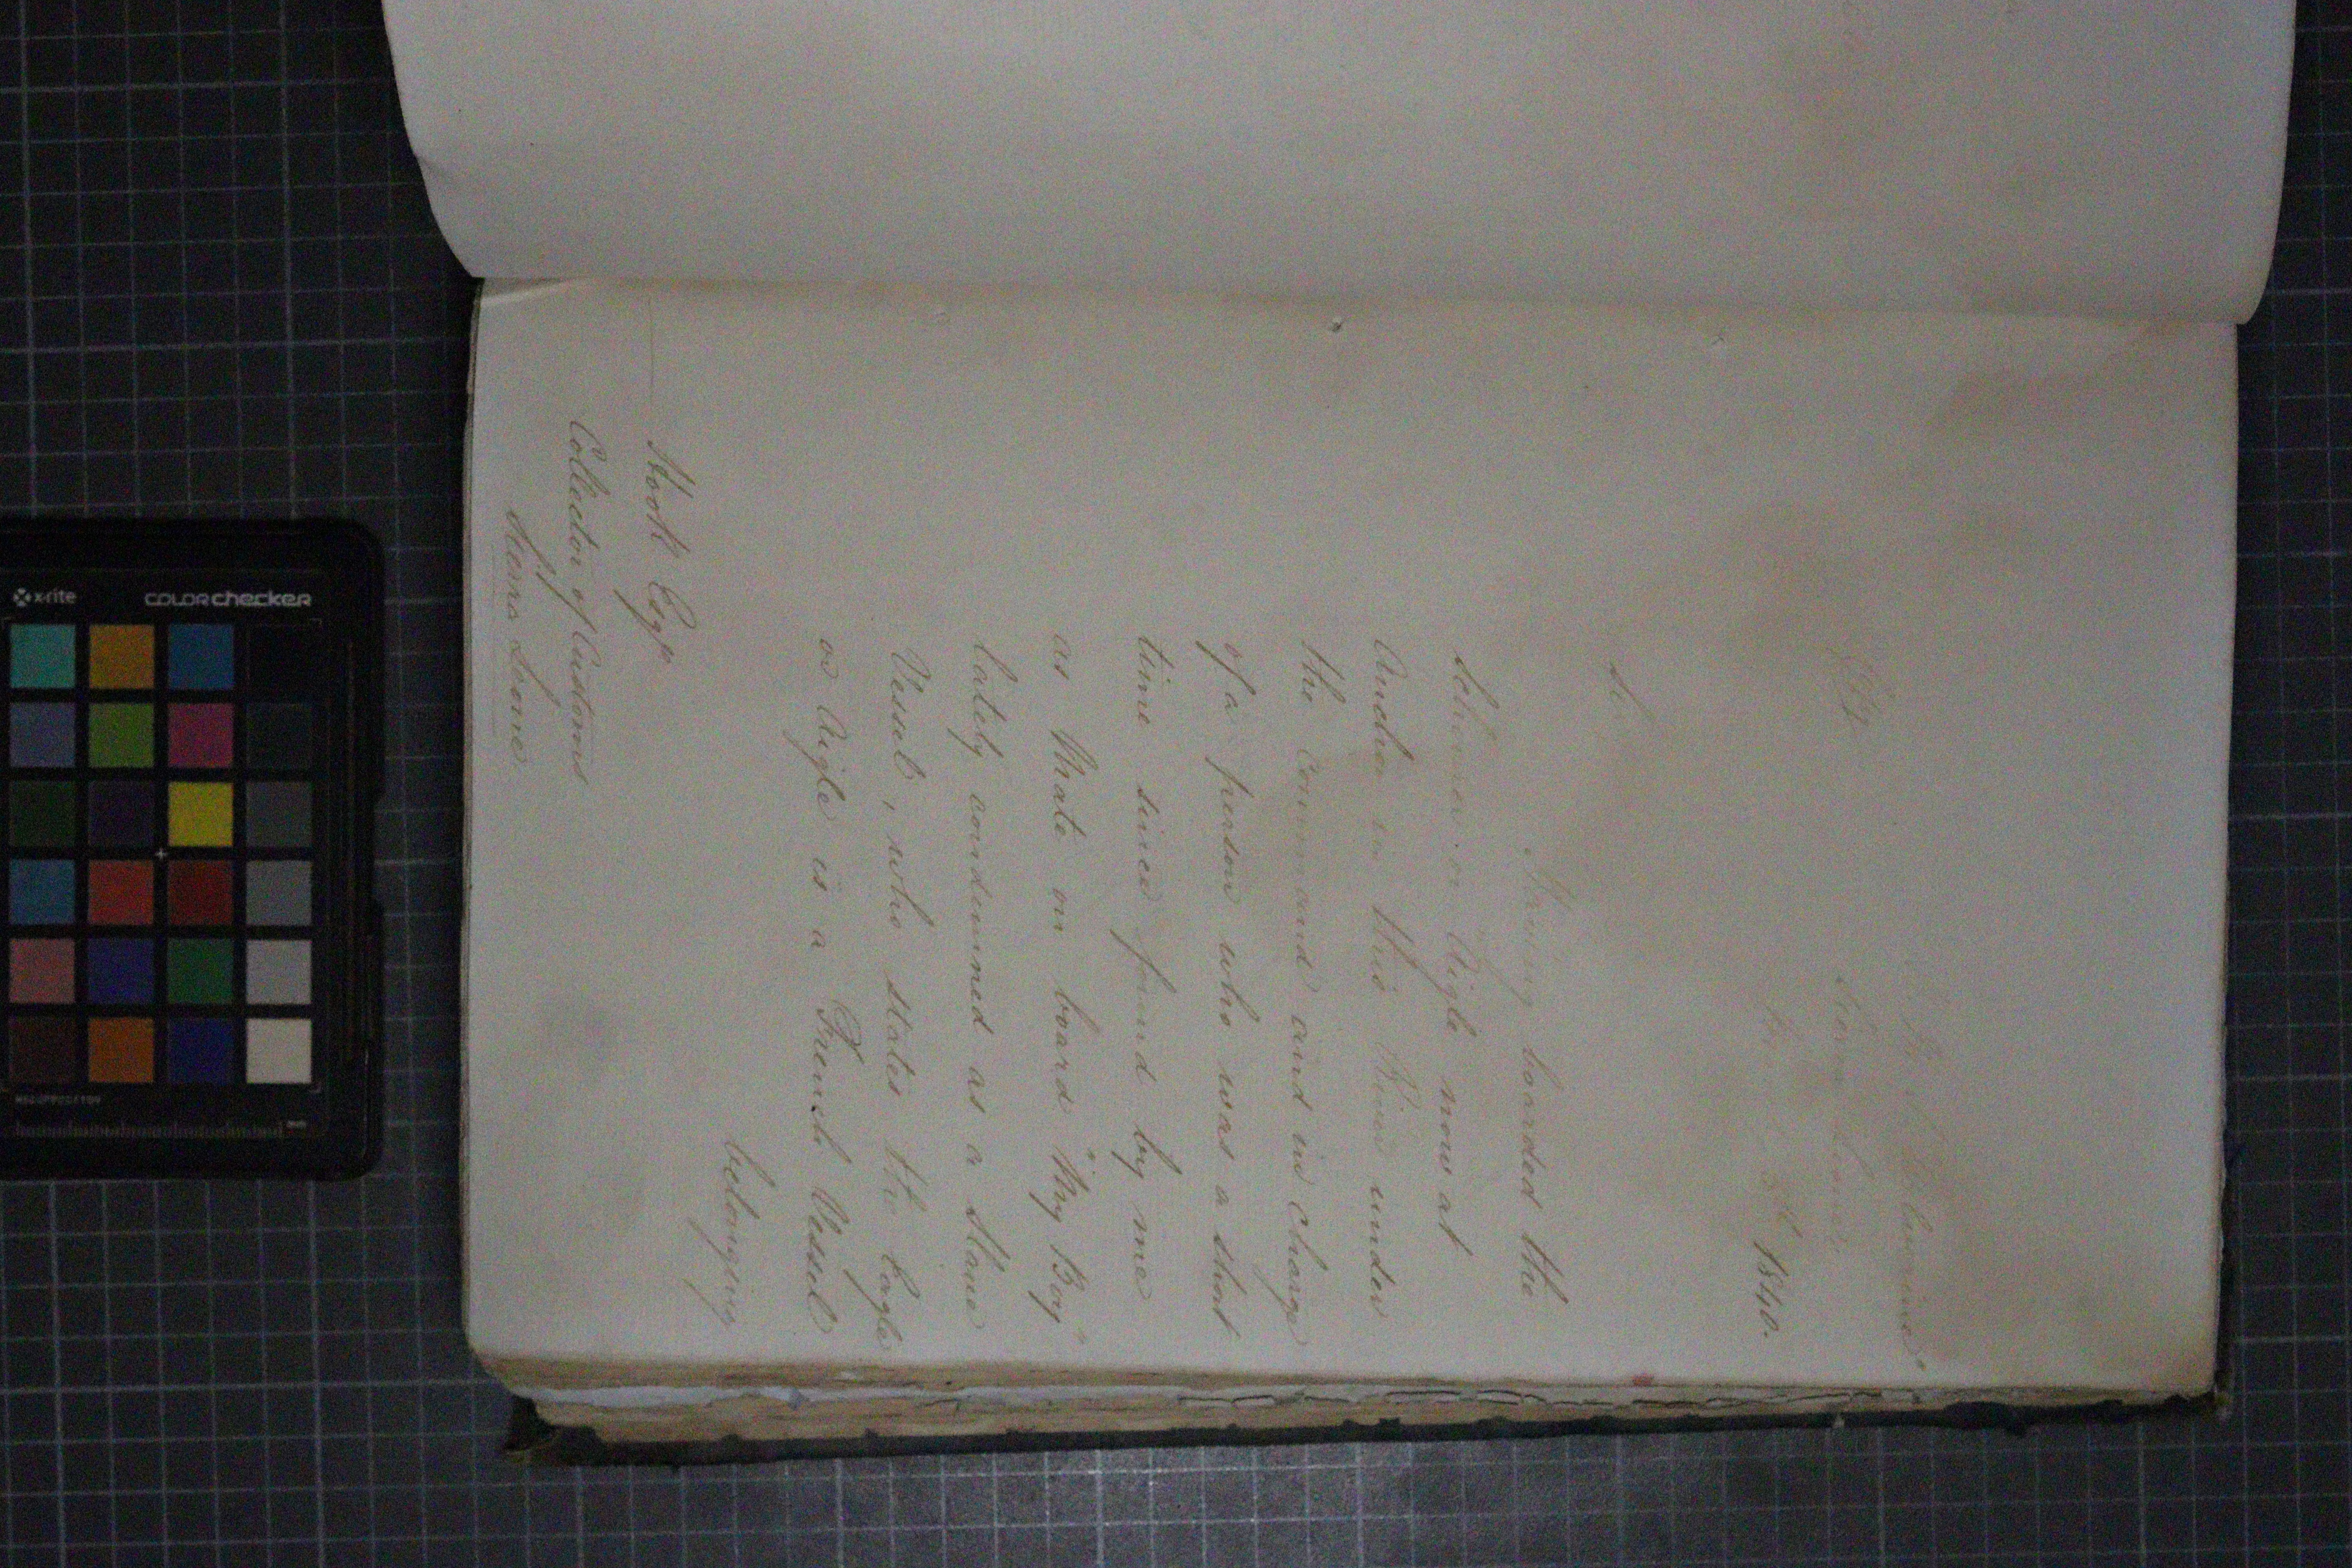 1840.
Having boarded the
Schooner or Aigle now at
Anchor in this River under
the Command and in charge
of a person who was a short
time since found by me
as Mate on board "My Boy"
lately condemned as a Slave
Vessel, who states the Eagle
or Aigle is a French Vessel
belonging
Hook Esqr
Collector of Customs
Sierra Leone
x-rite
COLORchecker